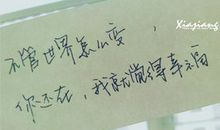 Xiajiang
不管世界怎么变，
你还在，我就觉得幸福